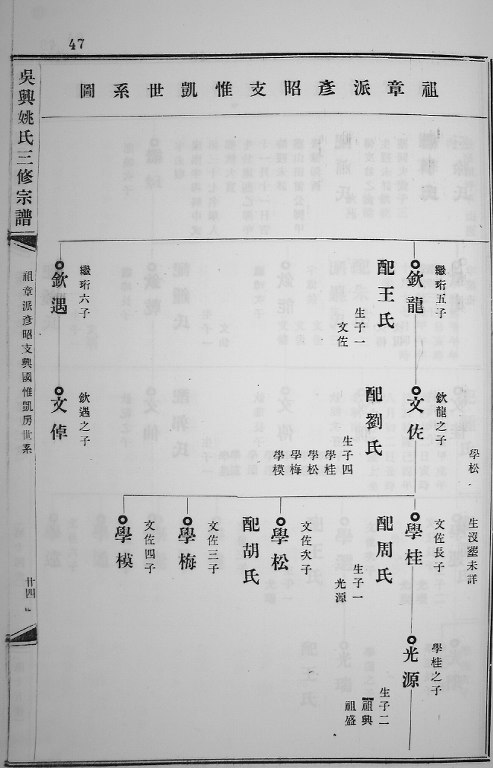 47
祖章派彥昭支惟凱世系圖
吳興姚氏三修宗譜
祖章派彥昭支興國惟凱房世系
廿四
學松
生沒塟未詳
繼珩五子
欽龍
配王氏
生子一
文佐
繼珩六子
欽遇
欽龍之子
文佐
配劉氏
生子四
學桂
學松
學梅
學模
欽遇之子
文倬
文佐長子
學桂
配周氏
生子一
光源
文佐次子
學松
配胡氏
文佐三子
學梅
文佐四子
學模
學桂之子
光源
生子二
祖興
祖盛